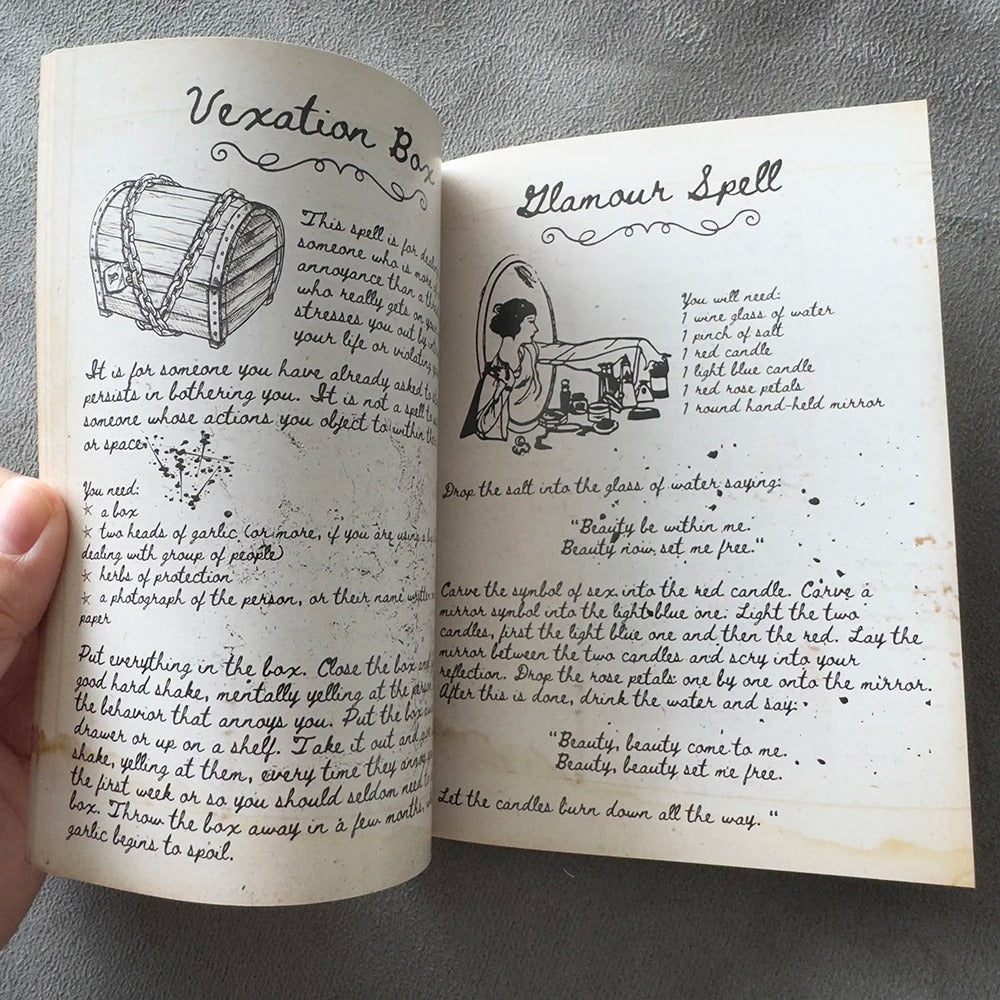 Vexation Box
This spell is for
someone who is more
annoyance than a
who really gets on
stresses you out by
your life or violating
It is for someone you have already asked to
persists in bothering you. It is not a spell to
someone whose actions you object to within
or space.
You need:
* a box
* two heads of garlic (or more, if you are using a
dealing with group of people)
* herbs of protection
* a photograph of the person, or their name written
paper
Put everything in the box. Close the box and
good hard shake, mentally yelling at the person
the behavior that annoys you. Put the box
drawer or up on a shelf. Take it out and
shake, yelling at them, every time they annoy
the first week or so you should seldom need
box. Throw the box away in a few months,
garlic begins to spoil.
Glamour Spell
You will need:
1 wine glass of water
1 pinch of salt
1 red candle
1 light blue candle
1 red rose petals
1 round hand-held mirror
Drop the salt into the glass of water saying:
"Beauty be within me.
Beauty now set me free."
Carve the symbol of sex into the red candle. Carve a
mirror symbol into the light blue one. Light the two
candles, first the light blue one and then the red. Lay the
mirror between the two candles and scry into your
reflection. Drop the rose petals one by one onto the mirror.
After this is done, drink the water and say:
"Beauty, beauty come to me.
Beauty, beauty set me free.
Let the candles burn down all the way. "